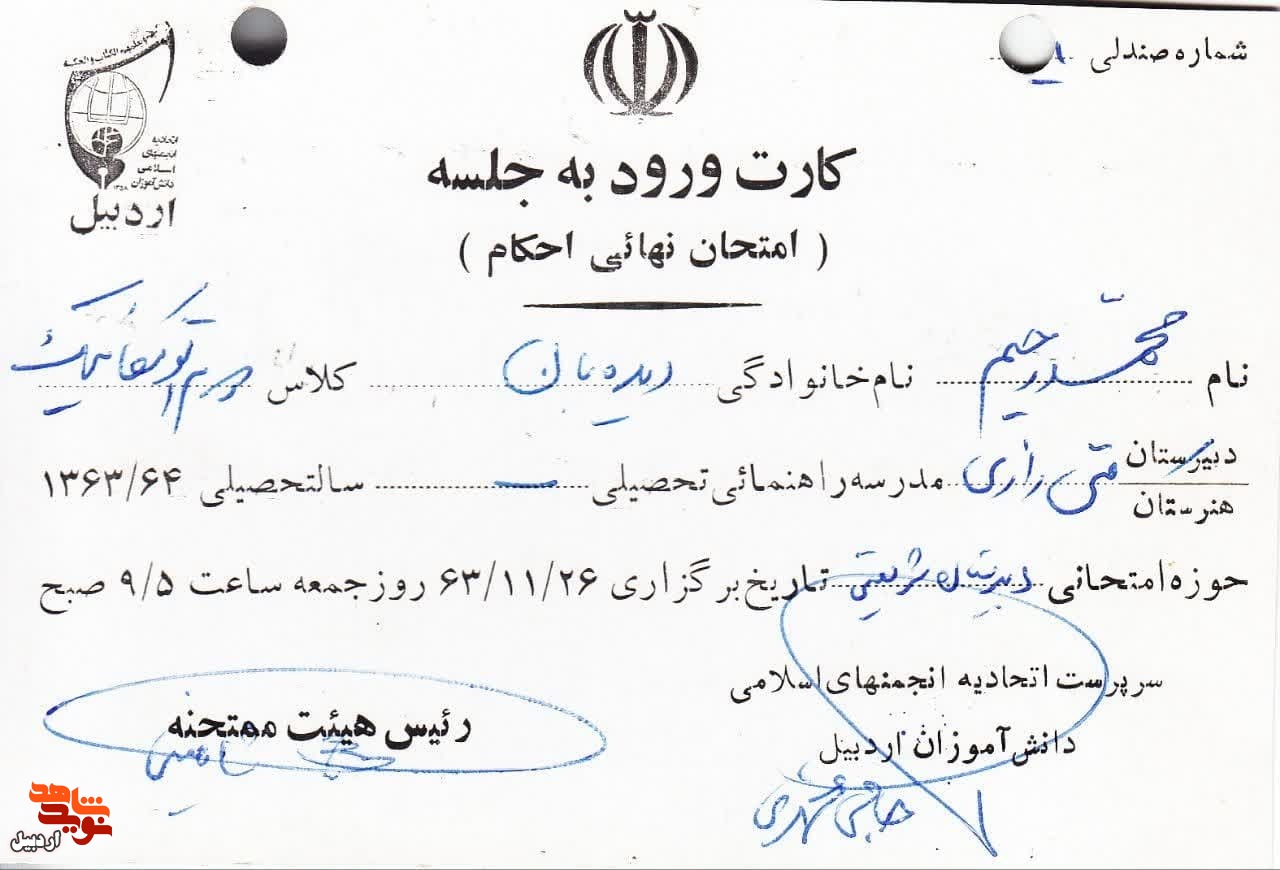 شماره صندلی
اتحادیه
انجمنهای
اسلامی
دانش‌آموزان
اردبیل
کارت ورود به جلسه
( امتحان نهائی احکام )
نام محمد رحیم نام‌خانوادگی دیده بان کلاس
دبیرستان
هنرستان
متقی رازی مدرسه راهنمائی تحصیلی ـ سالتحصیلی ۱۳۶۳/۶۴
حوزه امتحانی دبیرستان شریعتی تاریخ برگزاری ۶۳/۱۱/۲۶ روز جمعه ساعت ۹/۵ صبح
سرپرست اتحادیه انجمنهای اسلامی
دانش آموزان اردبیل
رئیس هیئت ممتحنه
نوید شاهد
اردبیل